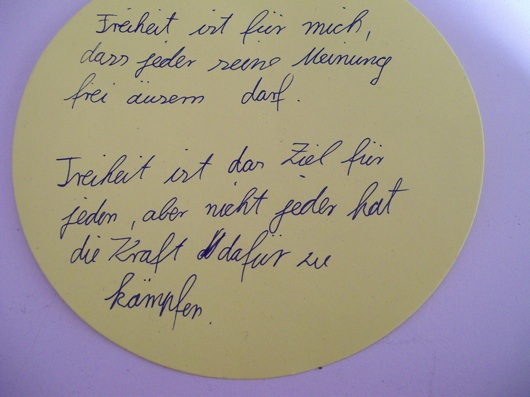 Freiheit ist für mich,
dass jeder seine Meinung
frei äusern darf.
Freiheit ist das Ziel für
jeden, aber nicht jeder hat
die Kraft dafür zu
kämpfen.